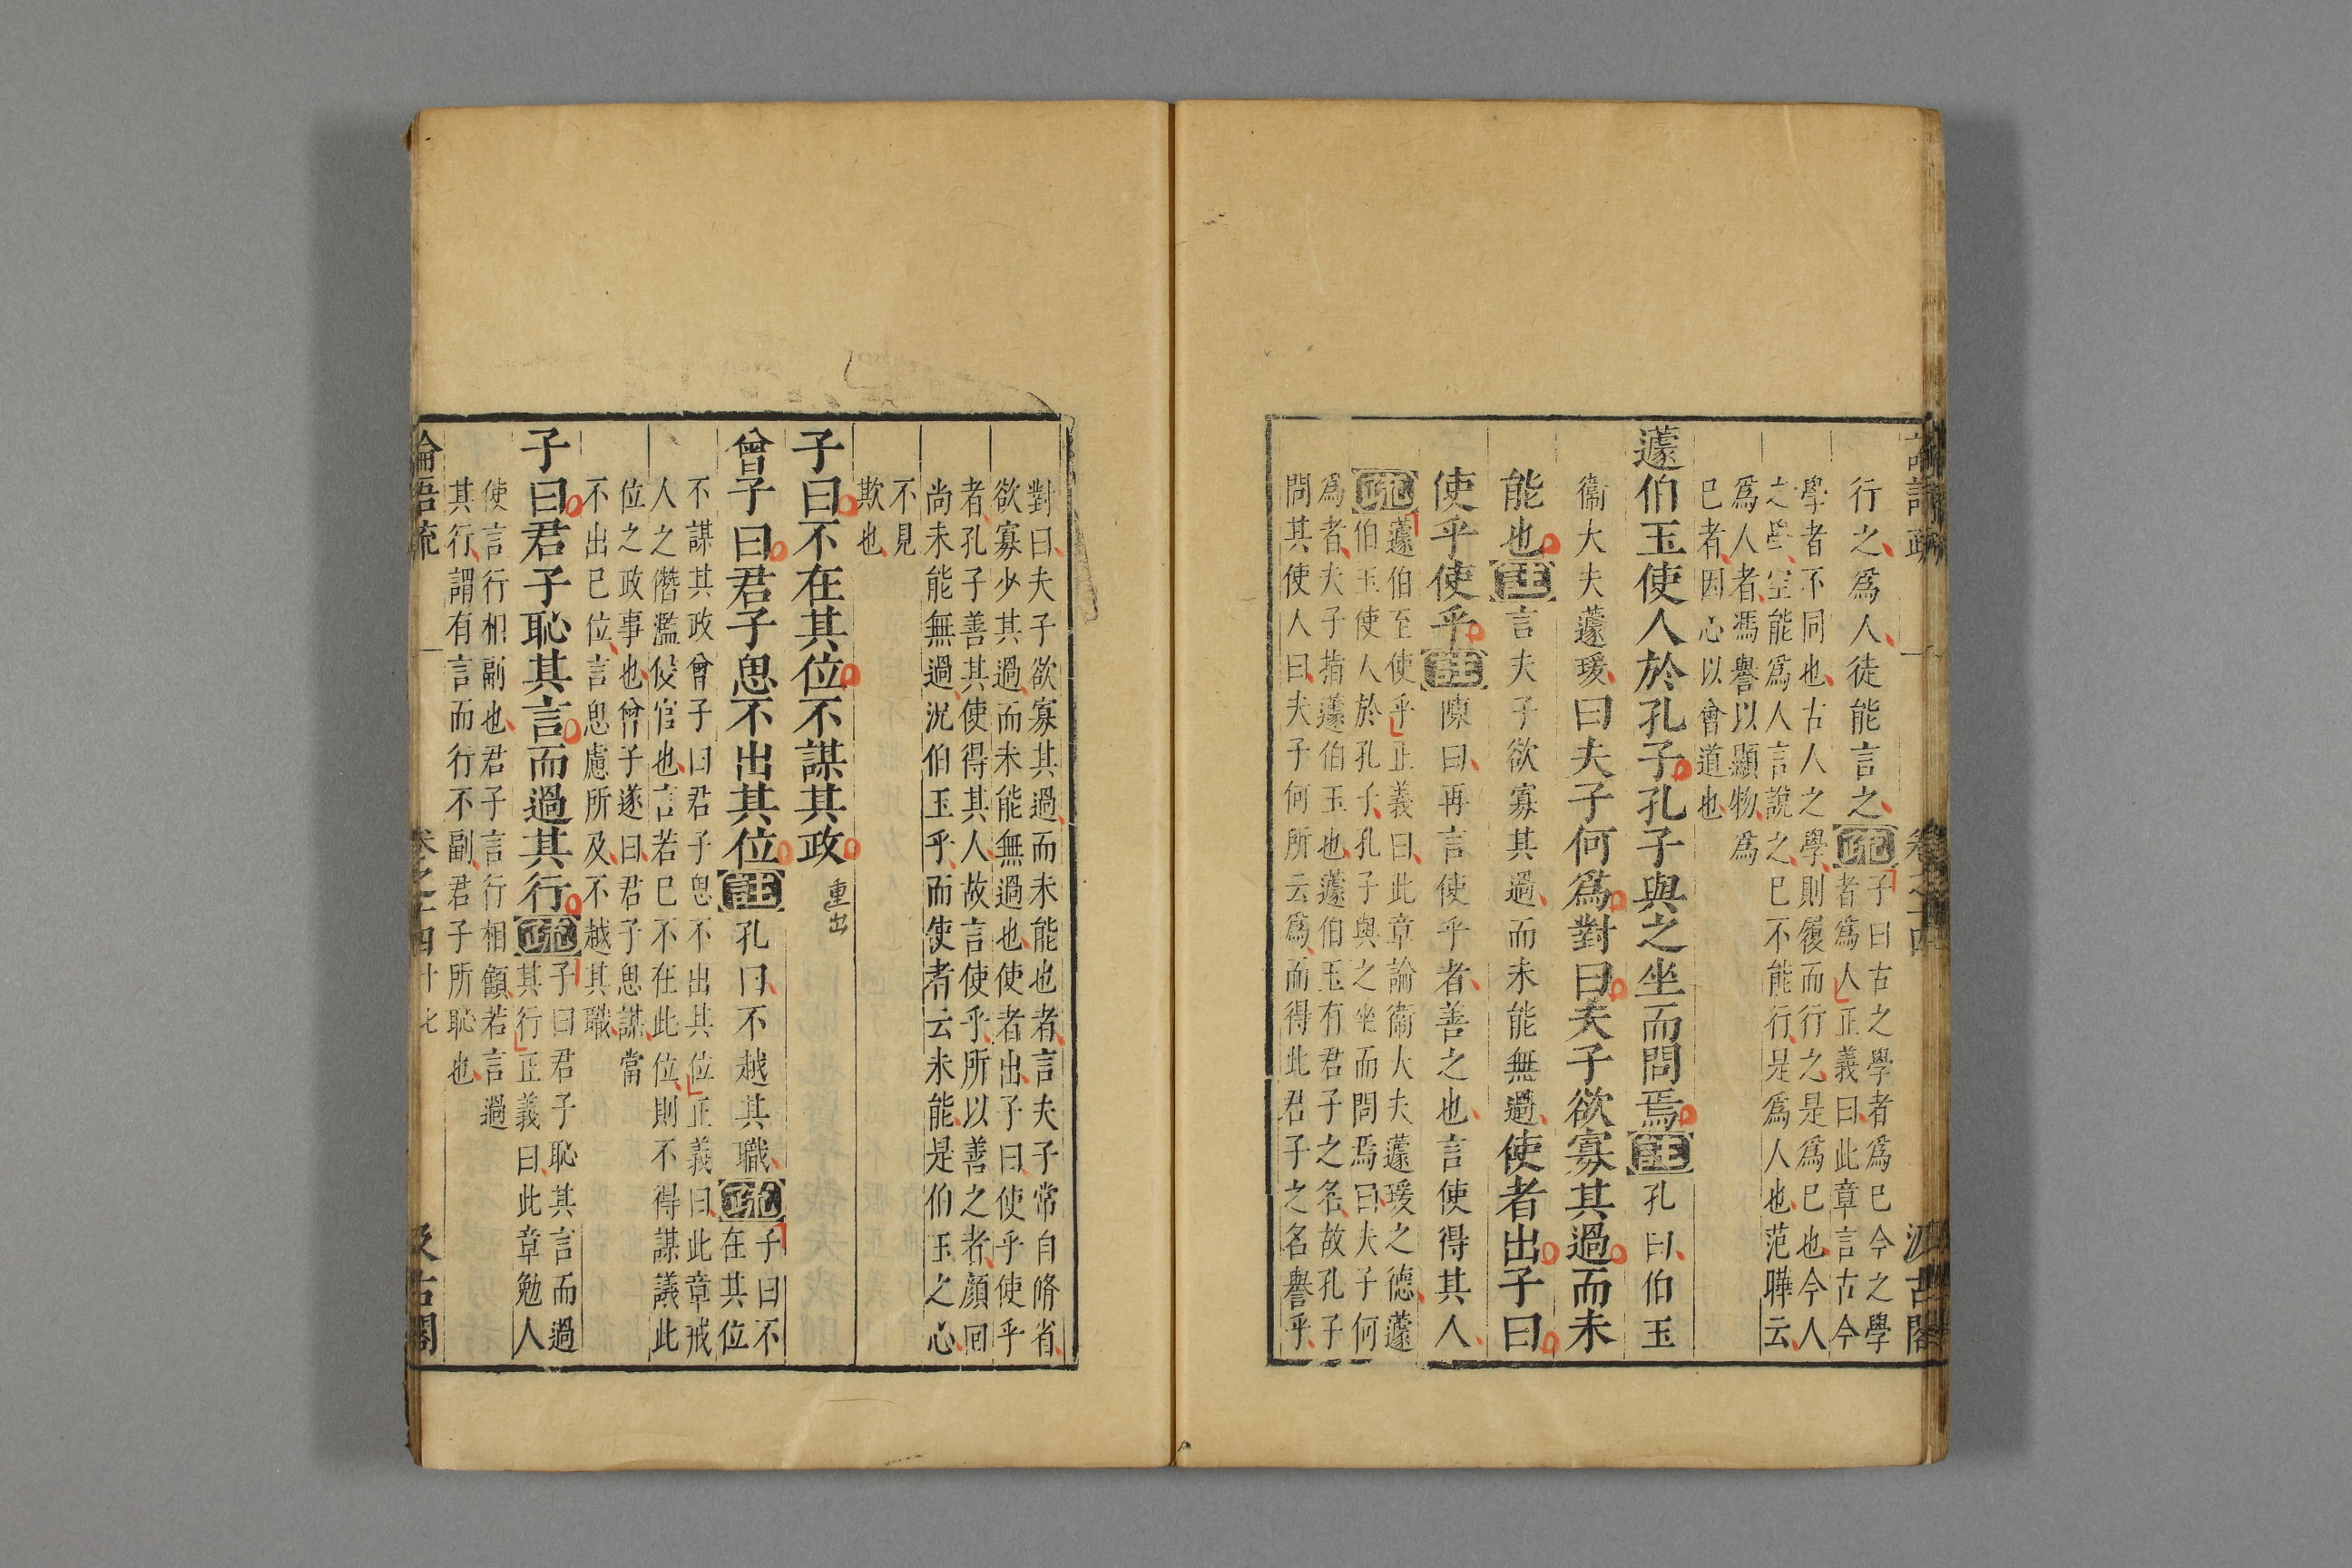 行之爲人徒能言之疏子曰古之學者爲己今之學
者爲人正義曰此章言古今
學者不同也古人之學則履而行之是爲己也今人
之學空能爲人言說之己不能行是爲人也范曄云
爲人者馮譽以顯物爲
己者因心以會道也
蘧伯玉使人於孔子孔子與之坐而問焉註孔曰伯玉
衞大夫蘧瑗曰夫子何爲對曰夫子欲寡其過而未
能也註言夫子欲寡其過而未能無過使者出子曰
使乎使乎註陳曰再言使乎者善之也言使得其人
疏蘧伯至使乎正義曰此章論衞大夫蘧瑗之德蘧
伯玉使人於孔子孔子與之坐而問焉曰夫子何
爲者夫子指蘧伯玉也蘧伯玉有君子之名故孔子
問其使人曰夫子何所云爲而得此君子之名譽乎
對曰夫子欲寡其過而未能也者言夫子常自脩省
欲寡少其過而未能無過也使者出子曰使乎使乎
者孔子善其使得其人故言使乎所以善之者顏回
尚未能無過況伯玉乎而使者云未能是伯玉之心
不見
欺也
子曰不在其位不謀其政
重出
曾子曰君子思不出其位註孔曰不越其職疏子曰不
在其位
不謀其政曾子曰君子思不出其位正義曰此章戒
人之僭濫侵官也言若己不在此位則不得謀議此
位之政事也曾子遂曰君子思謀當
不出己位言思慮所及不越其職
子曰君子恥其言而過其行疏子曰君子恥其言而過
其行正義曰此章勉人
使言行相副也君子言行相顧若言過
其行謂有言而行不副君子所恥也
論語疏 卷之十四 汲古閣